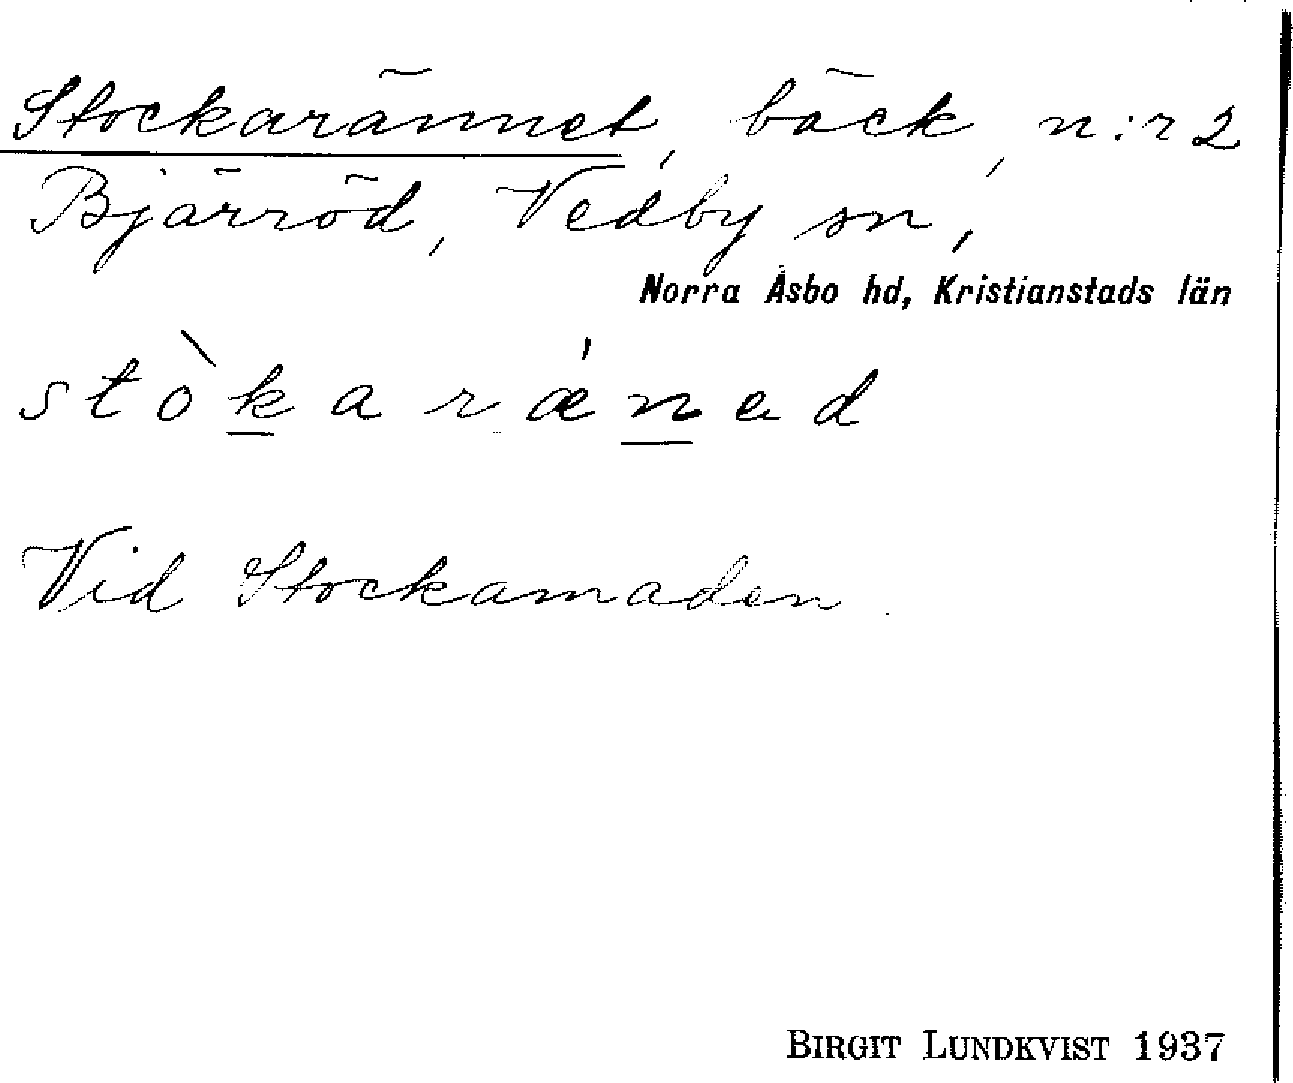 Stockarännet, bäck, n:r 2
Bjärröd, Vedby sn,
Norra Åsbo hd, Kristianstads län
stòkarǽned
Vid Stockamaden.
BIRGIT LUNDKVIST 1937